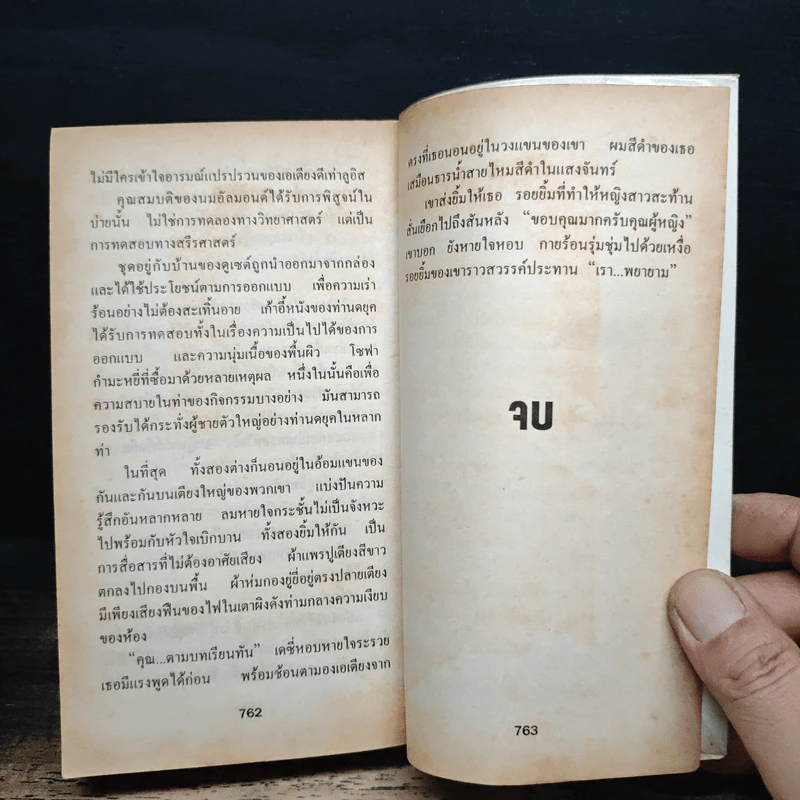 ไม่มีใครเข้าใจอารมณ์แปรปรวนของเอเตียงดีเท่าลูอิส
คุณสมบัติของนมอัลมอนด์ได้รับการพิสูจน์ใน
บ่ายนั้น ไม่ใช่การทดลองทางวิทยาศาสตร์ แต่เป็น
การทดสอบทางสรีรศาสตร์
ชุดอยู่กับบ้านของดูเซต์ถูกนำออกมาจากกล่อง
และได้ใช้ประโยชน์ตามการออกแบบ เพื่อความเร่า
ร้อนอย่างไม่ต้องสะเทิ้นอาย เก้าอี้หนังของท่านดยุค
ได้รับการทดสอบทั้งในเรื่องความเป็นไปได้ของการ
ออกแบบ และความนุ่มเนื้อของพื้นผิว โซฟา
กำมะหยี่ที่ซื้อมาด้วยหลายเหตุผล หนึ่งในนั้นคือเพื่อ
ความสบายในท่าของกิจกรรมบางอย่าง มันสามารถ
รองรับได้กระทั่งผู้ชายตัวใหญ่อย่างท่านดยุคในหลาก
ท่า
ในที่สุด ทั้งสองต่างก็นอนอยู่ในอ้อมแขนของ
กันและกันบนเตียงใหญ่ของพวกเขา แบ่งปันความ
รู้สึกอันหลากหลาย ลมหายใจกระชั้นไม่เป็นจังหวะ
ไปพร้อมกับหัวใจเบิกบาน ทั้งสองยิ้มให้กัน เป็น
การสื่อสารที่ไม่ต้องอาศัยเสียง ผ้าแพรปูเตียงสีขาว
ตกลงไปกองบนพื้น ผ้าห่มกองยู่ยี่อยู่ตรงปลายเตียง
มีเพียงเสียงฟืนของไฟในเตาผิงดังท่ามกลางความเงียบ
ของห้อง
“คุณ...ตามบทเรียนทัน” เดซี่หอบหายใจระรวย
เธอมีแรงพูดได้ก่อน พร้อมช้อนตามองเอเตียงจาก
762
ตรงที่เธอนอนอยู่ในวงแขนของเขา ผมสีดำของเธอ
เสมือนธารน้ำสายไหมสีดำในแสงจันทร์
เขาส่งยิ้มให้เธอ รอยยิ้มที่ทำให้หญิงสาวสะท้าน
สั่นเยือกไปถึงสันหลัง “ขอบคุณมากครับคุณผู้หญิง”
เขาบอก ยังหายใจหอบ กายร้อนรุ่มชุ่มไปด้วยเหงื่อ
รอยยิ้มของเขาราวสวรรค์ประทาน “เรา...พยายาม”
จบ
763